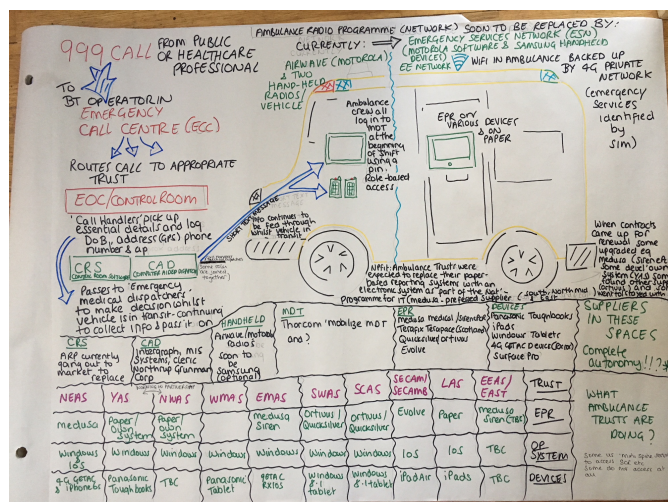 999 CALL FROM PUBLIC
OR HEALTHCARE
PROFESSIONAL
TO
BT OPERATOR IN
EMERGENCY
CALL CENTRE (ECC)
ROUTES CALL TO APPROPRIATE
TRUST
EOC/CONTROL ROOM
'Call Handlers' pick up
essential details and log
DoB, address (GRS) phone
number &
CRS
CAD
COMPUTER AIDED DISPATCH
Passes to 'Emergency
medical dispatcher'
to make decision whilst
vehicle is in transit - continuing
to collect info & pass it on
AMBULANCE RADIO PROGRAMME (NETWORK) SOON TO BE REPLACED BY:
CURRENTLY:
EMERGENCY SERVICES NETWORK (ESN)
(MOTOROLA SOFTWARE & SAMSUNG HANDHELD
DEVICES)
EE NETWORK
WIFI IN AMBULANCE BACKED UP
BY 4G PRIVATE
NETWORK
(emergency
services
identified
by
sim)
AIRWAVE (MOTOROLA)
& TWO
HAND-HELD
RADIOS/
VEHICLE
Ambulance
crew all
log in to
MDT
at the
beginning
of shift
using a
pin.
Role-based
access
EPR on
VARIOUS DEVICES
& ON
PAPER
SHORT TEXT MESSAGE
Info continues to
be fed through
whilst vehicle in
transit
NPfIT: Ambulance Trusts were
expected to replace their paper-
based reporting systems with an
electronic system as 'part of the
Programme for IT (medusa - preferred supplier
When contracts
came up for
renewal some
upgraded eg
medusa
some devel' own
system
found other
SUPPLIERS
IN THESE
SPACES
Complete
autonomy!!?
CRS
ARP currently
going out to
market to
replace
CAD
Intergraph, MIS
Systems, Cleric
Northrop Grumman
Corp
HANDHELD
Airwave/motorola
radios
soon to
be
Samsung
(optional)
MDT
Thorcom 'mobilize MDT
and ?
EPR
Medusa medical
Terapix Terapace (Scotland)
Quicksilver/ortivus
Evolve
DEVICE:
Panasonic Toughbooks
iPads
Windows Tablet
4G GETAC Devices
Surface Pro
NEAS YAS NWAS WMAS EMAS SWAS SCAS SECAM/SECAMB LAS EEAS/EAST TRUST
medusa Paper/own system Paper/own system medusa Siren Ortivus/Quicksilver Ortivus/Quicksilver Evolve Paper medusa Siren (TBC) EPR
Windows & ios Windows Windows Windows Windows Windows Windows IOS IOS TBC OP SYSTEM
4G GETAC & iPhone 6s Panasonic Toughbooks TBC Panasonic Tablet GETAC RX10s Windows 8.1 tablet Windows 8.1 tablet iPad Air iPads TBC DEVICES
WHAT
AMBULANCE
TRUSTS ARE
DOING?